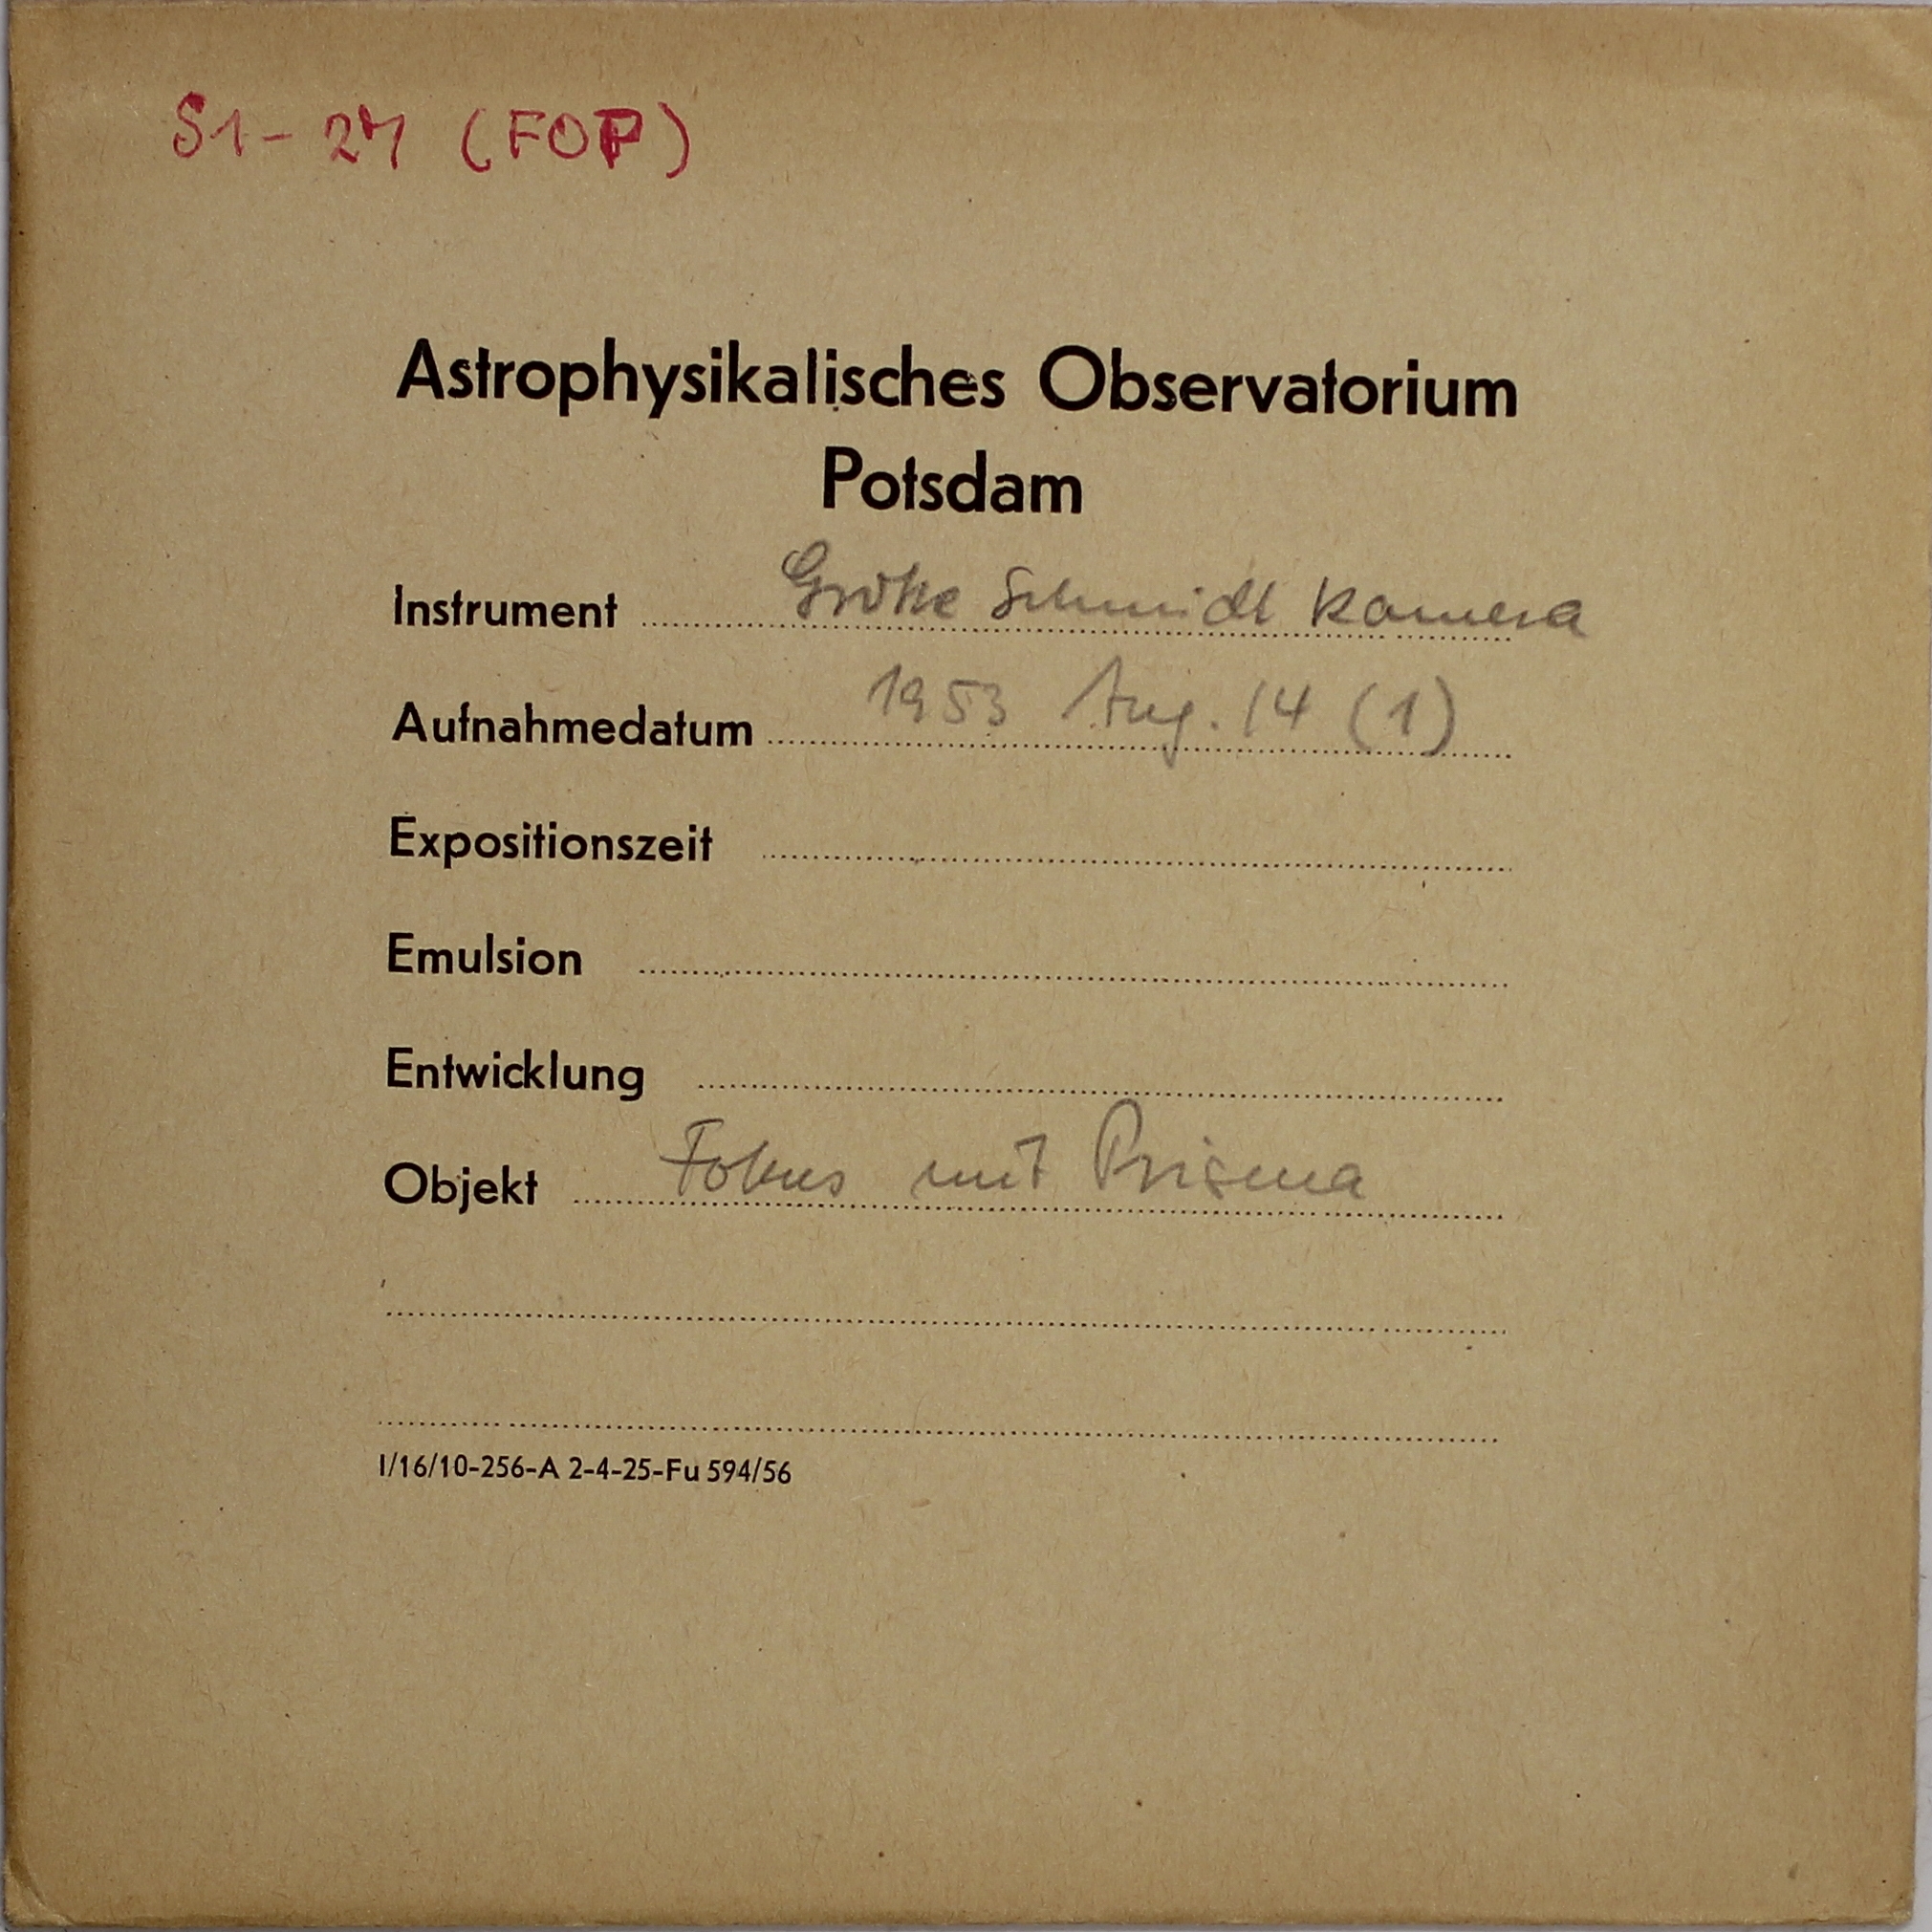 S1-27 (FOP)
Astrophysikalisches Observatorium
Potsdam
Instrument Große Schmidt Kamera
Aufnahmedatum 1953 Aug. 14 (1)
Expositionszeit
Emulsion
Entwicklung
Objekt Fokus mit Prisma
I/16/10-256-A 2-4-25-Fu 594/56